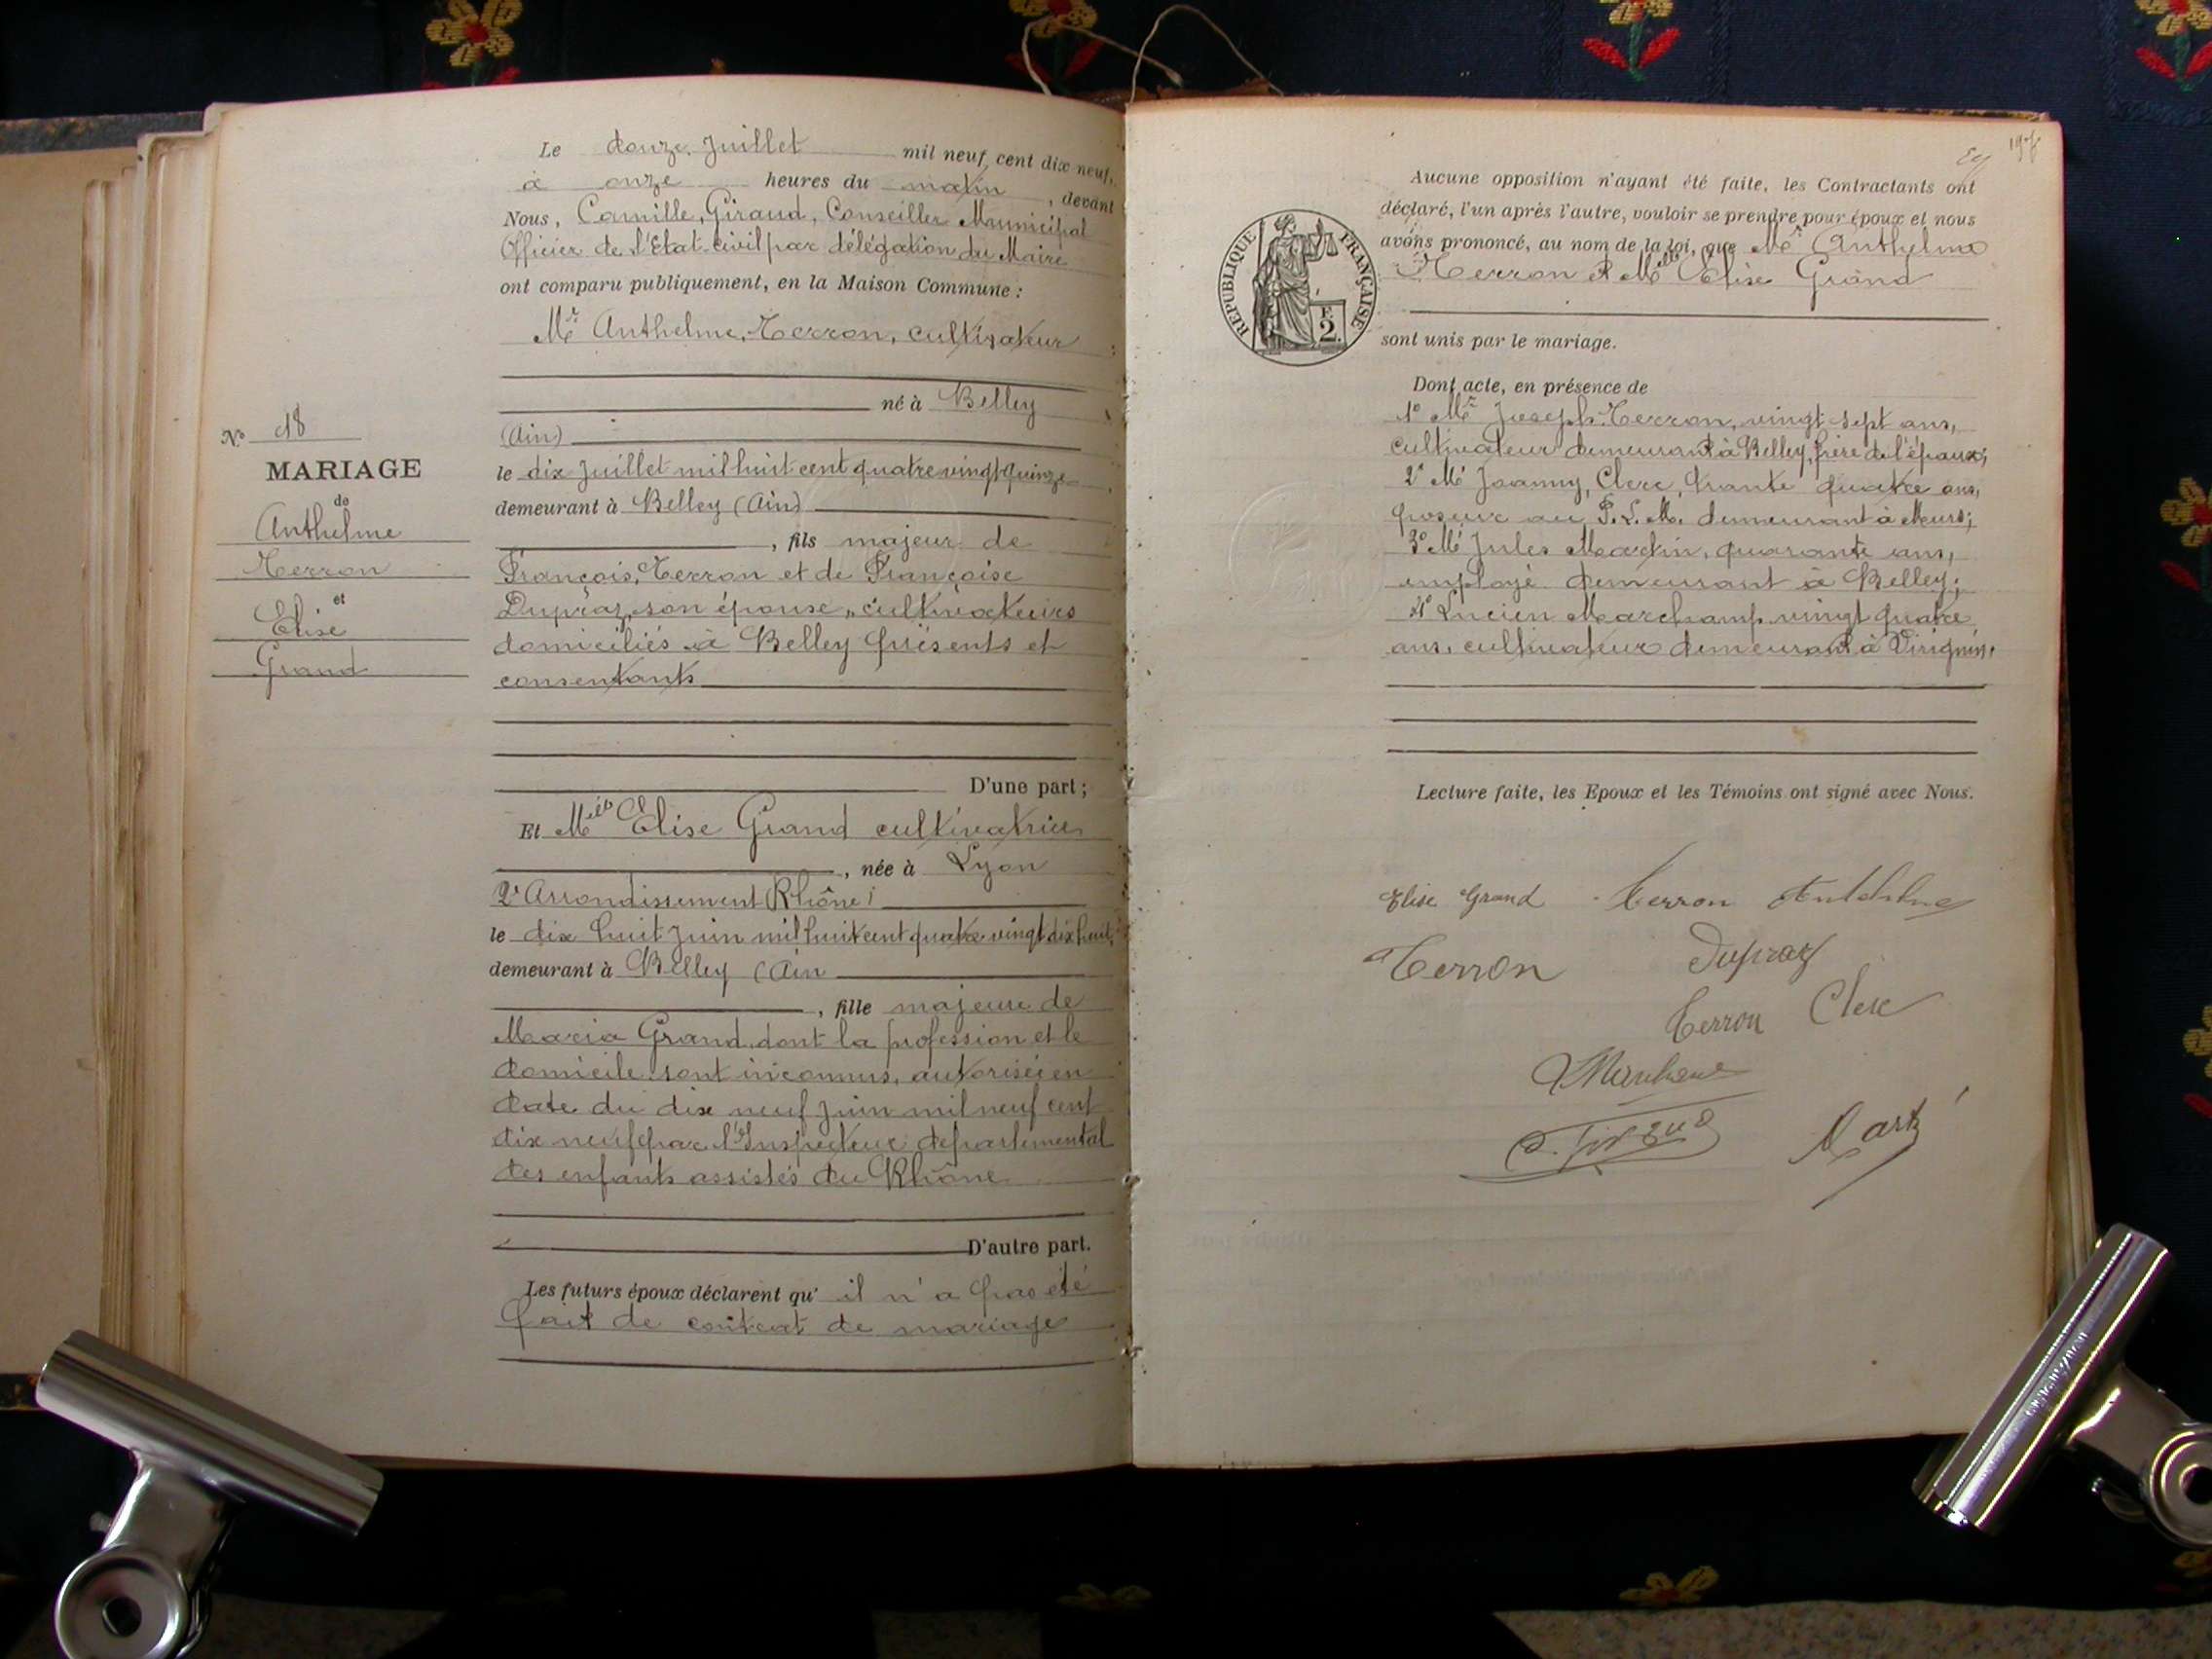 Le douze Juillet mil neuf cent dix neuf,
à onze heures du matin, devant
Nous, Camille, Giraud, Conseiller Municipal
Officier de l'Etat civil par délégation du Maire
ont comparu publiquement, en la Maison Commune :
Mr Anthelme, Terron, cultivateur
né à Belley
(Ain)
le dix Juillet mil huit cent quatre vingt quinze
demeurant à Belley (Ain)
, fils majeur de
François, Terron et de Françoise
Dupraz, son épouse, cultivateurs
domiciliés à Belley présents et
consentants
D'une part ;
Et Melle Elise Grand cultivatrice
, née à Lyon
2e Arrondissement (Rhône)
le dix huit Juin mil huit cent quatre vingt dix huit,
demeurant à Belley (Ain
, fille majeure de
Maria Grand, dont la profession et le
domicile sont inconnus, autorisée en
date du dix neuf Juin mil neuf cent
dix neuf par l'Inspecteur départemental
des enfants assistés du Rhône
D'autre part.
Les futurs époux déclarent qu' il n'a pas été
fait de contrat de mariage
No 18
MARIAGE
de
Anthelme
Terron
et
Elise
Grand
Aucune opposition n'ayant été faite, les Contractants ont
déclaré, l'un après l'autre, vouloir se prendre pour époux et nous
avons prononcé, au nom de la loi, que Mr Anthelme
Terron et Melle Elise Grand
sont unis par le mariage.
REPUBLIQUE FRANÇAISE
E
2
Dont acte, en présence de
1o Mr Joseph Terron, vingt sept ans,
cultivateur demeurant à Belley, frère de l'époux;
2o Mr Joanny, Clerc, trente quatre ans,
poseur au P. L. M. demeurant à
3o Mr Jules Martin, quarante ans,
employé demeurant à Belley;
4o Lucien Marchamp vingt quatre
ans, cultivateur demeurant à Virignin.
Lecture faite, les Epoux et les Témoins ont signé avec Nous.
Elise Grand Terron Anthelme
Terron Dupraz
Terron Clerc
C. Giraud